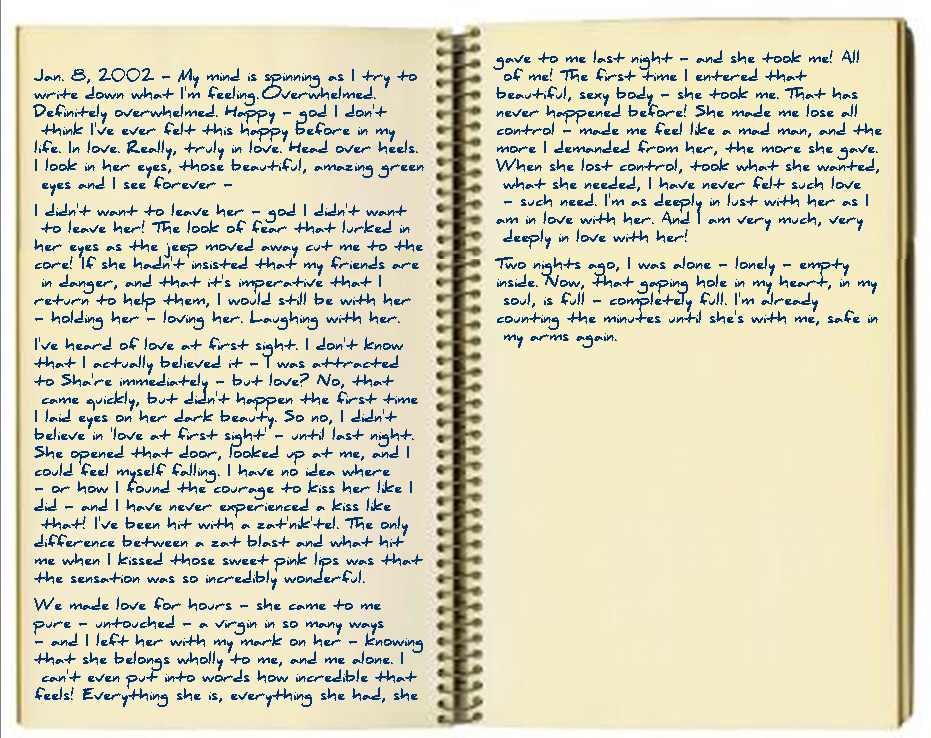 Jan. 8, 2002 - My mind is spinning as I try to
write down what I'm feeling. Overwhelmed.
Definitely overwhelmed. Happy - god I don't
think I've ever felt this happy before in my
life. In love. Really, truly in love. Head over heels.
I look in her eyes, those beautiful, amazing green
eyes and I see forever -
I didn't want to leave her - god I didn't want
to leave her! The look of fear that lurked in
her eyes as the jeep moved away cut me to the
core! If she hadn't insisted that my friends are
in danger, and that it's imperative that I
return to help them, I would still be with her
- holding her - loving her. Laughing with her.
I've heard of love at first sight. I don't know
that I actually believed it - I was attracted
to Sha're immediately - but love? No, that
came quickly, but didn't happen the first time
I laid eyes on her dark beauty. So no, I didn't
believe in 'love at first sight' - until last night.
She opened that door, looked up at me, and I
could feel myself falling. I have no idea where
- or how I found the courage to kiss her like I
did - and I have never experienced a kiss like
that! I've been hit with a zat'nik'tel. The only
difference between a zat blast and what hit
me when I kissed those sweet pink lips was that
the sensation was so incredibly wonderful.
We made love for hours - she came to me
pure - untouched - a virgin in so many ways
- and I left her with my mark on her - knowing
that she belongs wholly to me, and me alone. I
can't even put into words how incredible that
feels! Everything she is, everything she had, she
gave to me last night - and she took me! All
of me! The first time I entered that
beautiful, sexy body - she took me. That has
never happened before! She made me lose all
control - made me feel like a mad man, and the
more I demanded from her, the more she gave.
When she lost control, took what she wanted,
what she needed, I have never felt such love
- such need. I'm as deeply in lust with her as I
am in love with her. And I am very much, very
deeply in love with her!
Two nights ago, I was alone - lonely - empty
inside. Now, that gaping hole in my heart, in my
soul, is full - completely full. I'm already
counting the minutes until she's with me, safe in
my arms again.